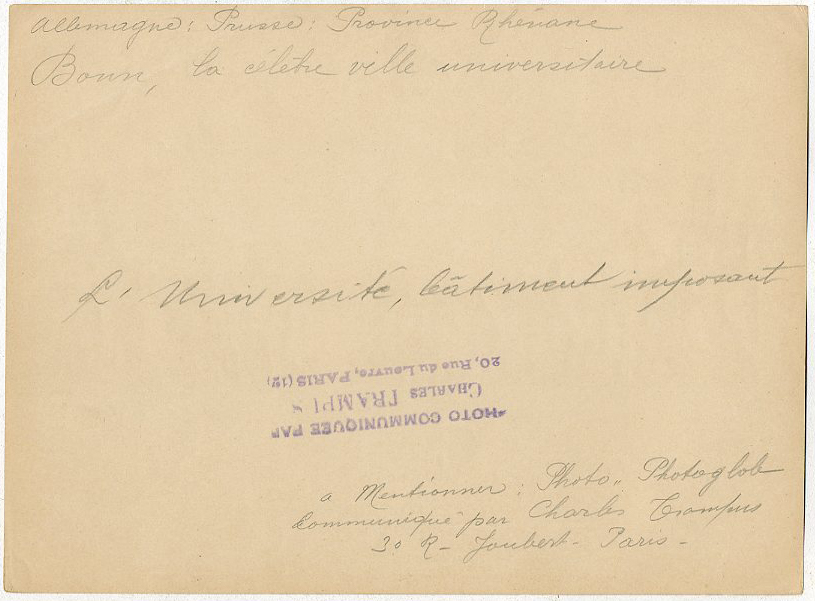 Allemagne : Prusse : Province Rhénane
Bonn, la célèbre ville universitaire
L' Université, bâtiment imposant
PHOTO COMMUNIQUÉE PAR
CHARLES TRAMPUS
20, Rue du Louvre, PARIS (1er)
a Mentionner : Photo „ Photoglob
Communiqué par Charles Trampus
30 R - Joubert - Paris -